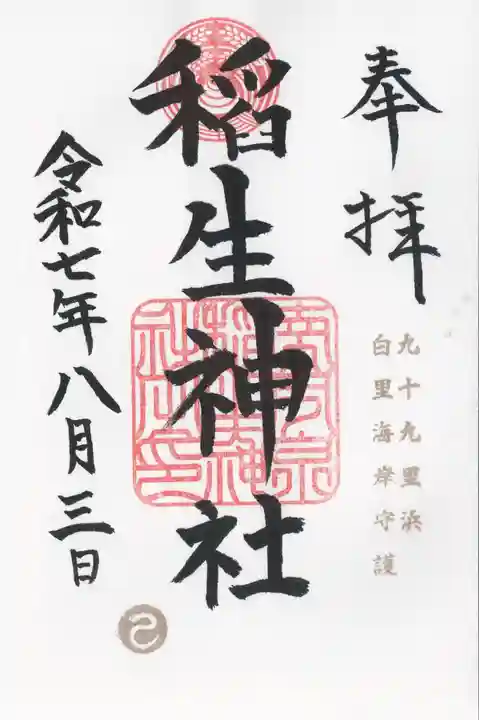 奉拝
九十九里浜
白里海岸守護
稲生神社
令和七年八月三日
巳